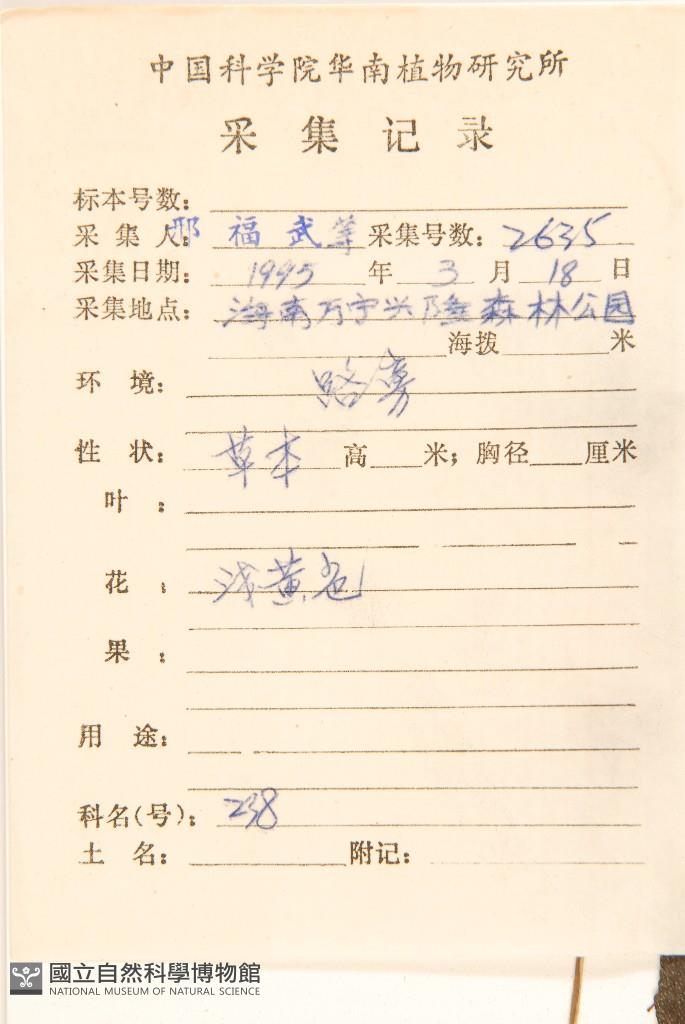 中国科学院华南植物研究所
采集记录
标本号数：
采集人：邢福武等 采集号数：2635
采集日期：1995年3月18日
采集地点：海南万宁兴隆森林公园
海拨 米
环境：路旁
性状：草本 高 米；胸径 厘米
叶：
花：浅黄色
果：
用途：
科名(号)：238
土名： 附记：
國立自然科學博物館
NATIONAL MUSEUM OF NATURAL SCIENCE